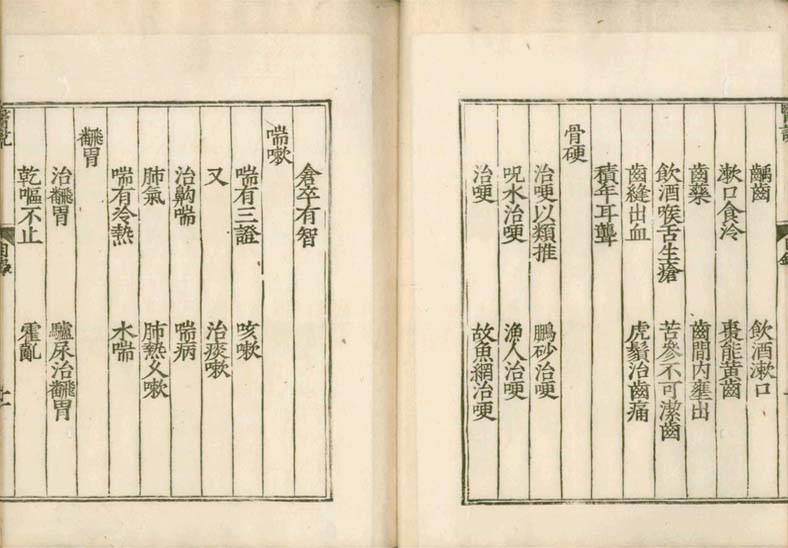 齲齒　飲酒漱口
漱口食冷　棗能黃齒
齒藥　齒間肉壅出
飲酒喉舌生瘡　苦參不可潔齒
齒縫出血　虎鬚治齒痛
積年耳聾
骨硬
治哽以類推　鵬砂治哽
呪水治哽　漁人治哽
治哽　故魚網治哽
倉卒有智
喘嗽
喘有三證　咳嗽
又　治痰嗽
治齁喘　喘病
肺氣　肺熱久嗽
喘有冷熱　水喘
翻胃
治翻胃　驢尿治翻胃
乾嘔不止　霍亂
醫說　目錄　十一